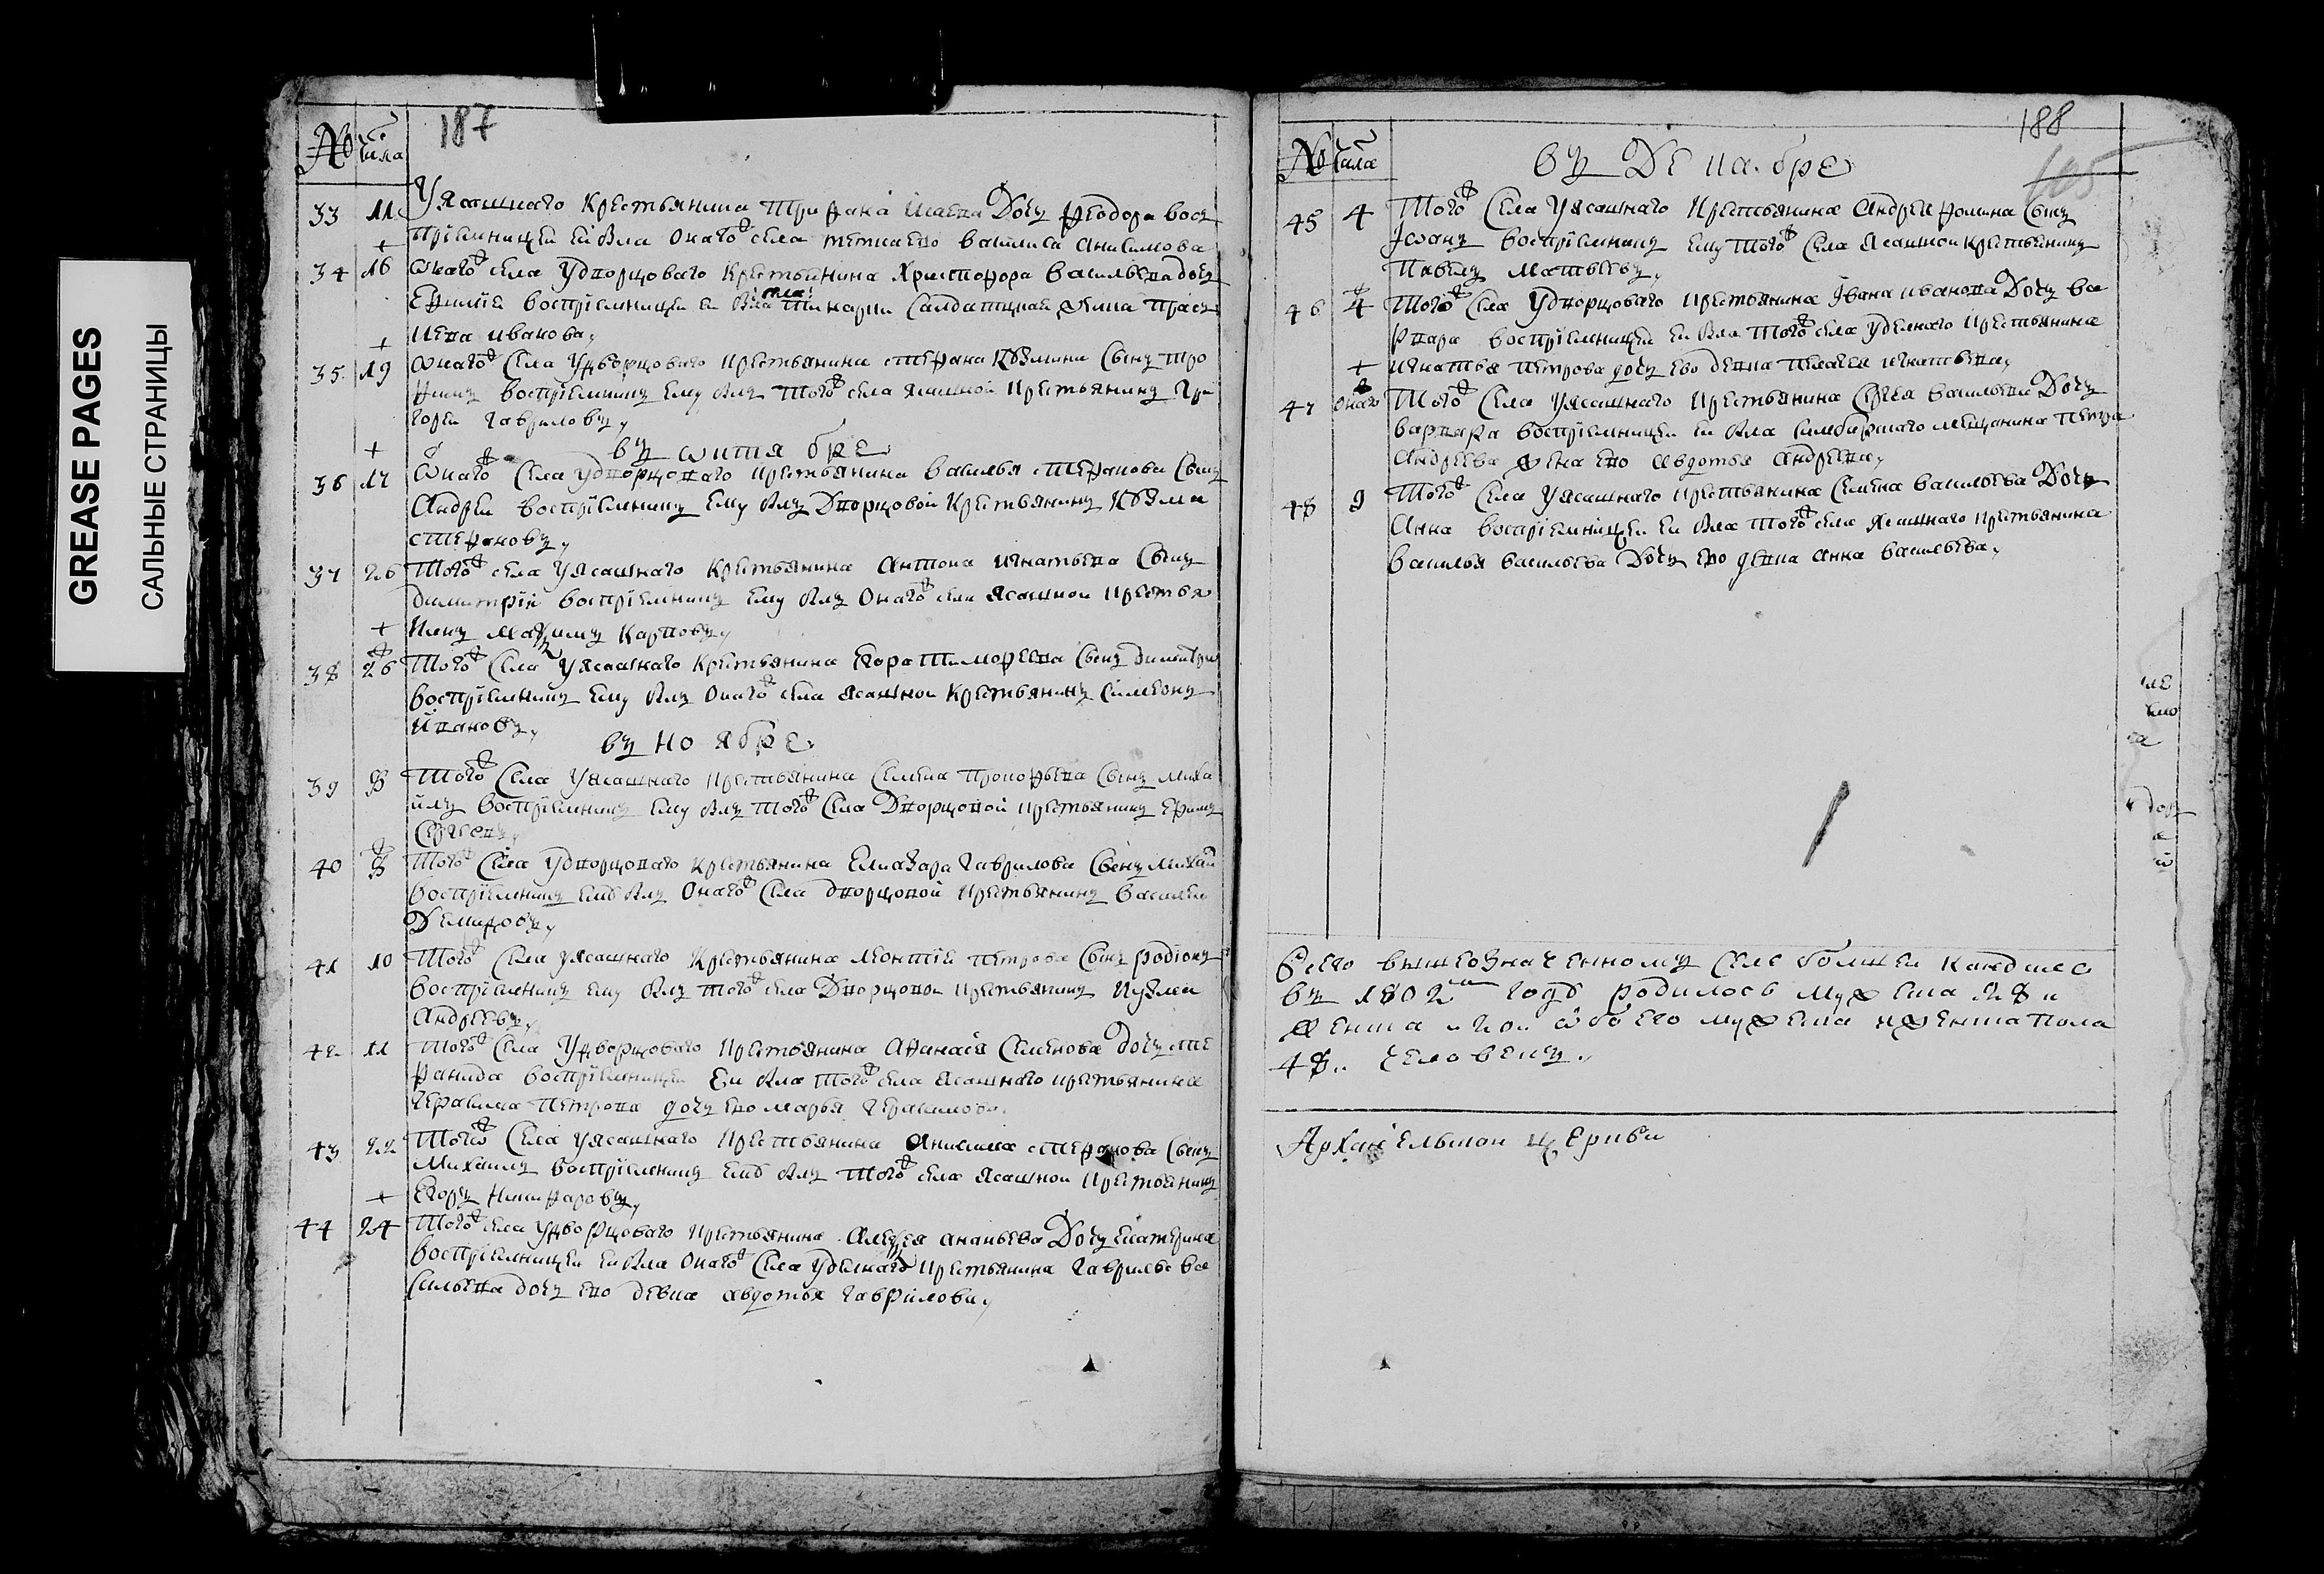 GREASE PAGES
САЛЬНЫЕ СТРАНИЦЫ
187
№ числа
33 11 У ясашнаго крестьянина Трифана Исаева дочь Феодора вос
приемницей ей бла онагож села тетка ево Василиса Анисимова
34 16 онагож села у дворцоваго крестьянина Христофора Васильева дочь
воспріемницей ей бла салдатцкая жена Праск
овья Иванова
35 19 онагож села у дворцоваго крестьянина Стефана Козмина сынъ Тро
фимъ воспріемникъ ему блъ тогож села ясашной крестьянинъ Гри
горей Гавриловъ
въ октябре
36 17 онагож села у дворцоваго крестьянина Василья Стефанова сынъ
Андрей воспріемникъ ему блъ дворцовой крестьянинъ Козма
Стефановъ
37 26 тогож села у ясашнаго крестьянина Антона Игнатьева сынъ
Димитрій воспріемникъ ему блъ онагож села ясашной крестья
нинъ Максимъ Карповъ
38 26 тогож села у ясашнаго крестьянина Егора Тимофеева сынъ Димитрий
воспріемникъ ему блъ онагож села ясашной крестьянинъ Симеонъ
Ивановъ
въ ноябре
39 8 тогож села у ясашнаго крестьянина Семена Прокофьева сынъ Миха
илъ воспріемникъ ему блъ тогож села дворцовой крестьянинъ Ефимъ
Сергеевъ
40 8 тогож села у дворцоваго крестьянина Елиазара Гаврилова сынъ Михаил
воспріемникъ емб блъ онагож села дворцовой крестьянинъ Василей
Демидовъ
41 10 тогож села у ясашнаго крестьянина Леонтия Петрова сынъ Родіонъ
воспріемникъ ему блъ тогож села дворцовой крестьянинъ Кузма
Андреевъ
42 11 тогож села у дворцоваго крестьянина Афанасья Семенова дочь Сте
фанида воспріемницей ей бла тогож села ясашнаго крестьянина
Герасима Петрова дочь ево Марья Герасимова
43 22 тогож села у ясашнаго крестьянина Анисима Стефанова сынъ
Михаилъ воспріемникъ емб блъ тогож села ясашной крестьянинъ
Егоръ Никифаровъ
44 24 тогож села у дворцоваго крестьянина Алексея Ананьева дочь Екатерина
воспріемницей ей бла онагож села уделнаго крестьянина Гаврилы Ва
сильева дочь ево девка Авдотья Гаврилова
188
105
№ числа
въ декабре
45 4 тогож села у ясашнаго крестьянина Андрея Фомина сынъ
Іоанъ воспріемникъ ему тогож села ясашной крестьянинъ
Павелъ Матвеевъ
46 4 тогож села у дворцоваго крестьянина Івана Иванова дочь Ва
рвара воспріемницей ей бла тогож села уделнаго крестьянина
Игнатья Петрова дочь ево девка Пелагея Игнатьева
47 онаго тогож села у ясашнаго крестьянина Сергея Васильева дочь
Варвара воспріемницей ей бла симбирскаго мещанина Петра
Андреева жена ево Авдотья Андреева
48 9 тогож села у ясашнаго крестьянина Семена Васильева дочь
Анна воспріемницей ей бла тогож села ясашнаго крестьянина
Василья Васильева дочь ево девка Анна Васильева
Всего вышеозначенномъ селе болшей Кандале
въ 1802м годб родилось мужеска 28 и
женска 20 и обоего мужеска и женска пола
48 человекъ
Архангельской церкви